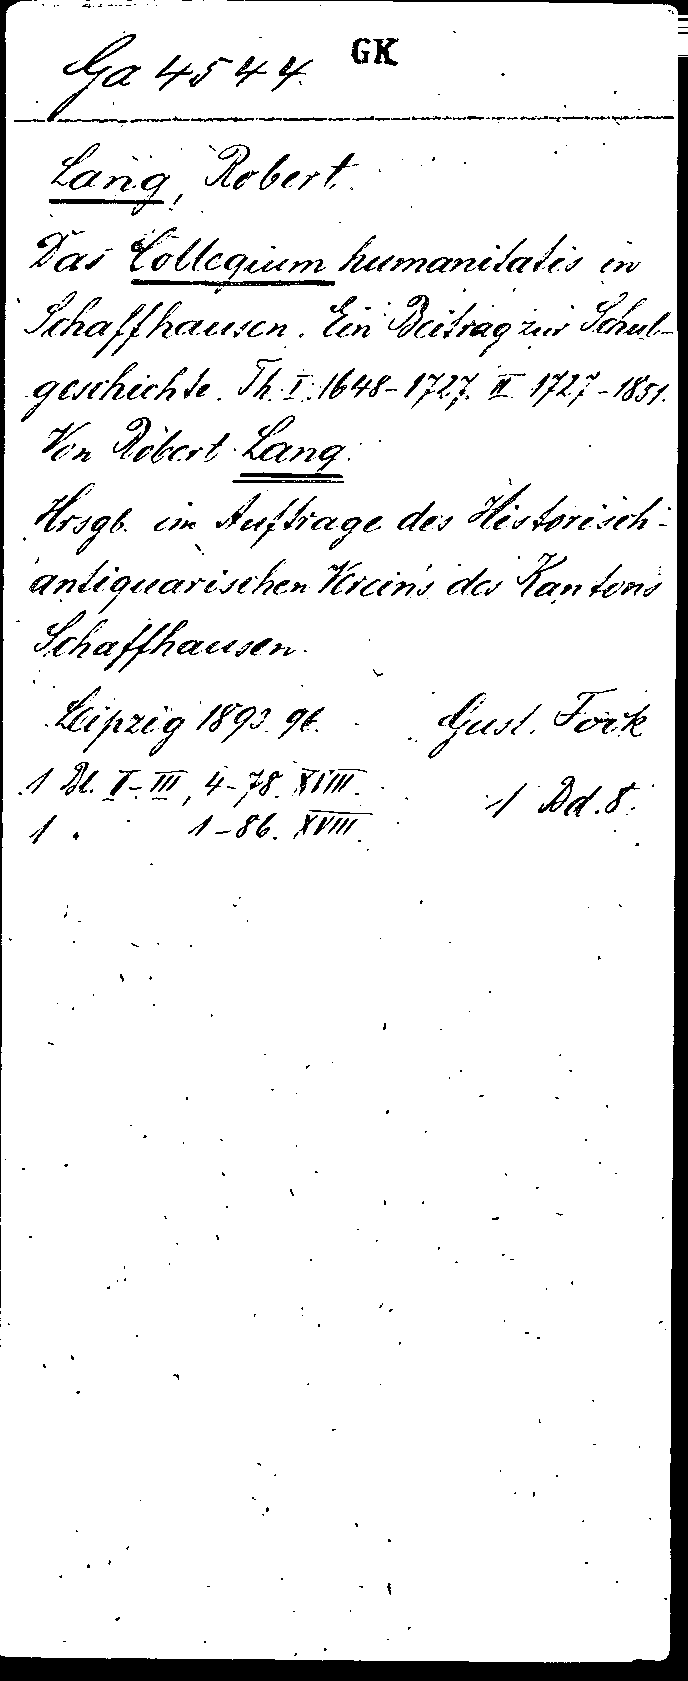 Ga 4544. GK
Lang, Robert.
Das Collegium humanitatis in
Schaffhausen. Ein Beitrag zur Schul-
geschichte. Th. I. 1648-1727. II 1727-1851.
Von Robert Lang.
Hrsgb. im Auftrage des Historisch-
antiquarischen Vereins des Kantons
Schaffhausen.
Leipzig 1893. 96. Gust. Fock
1 Bl. I-III, 4-78. XVIII. 1 Bd. 8.
1 . 1-86. XVIII.